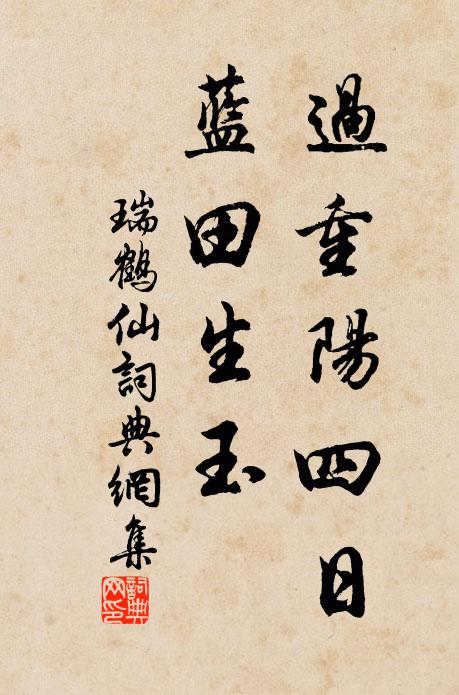 過重陽四日
藍田生玉
瑞鶴仙詞典網集
詞典
网印